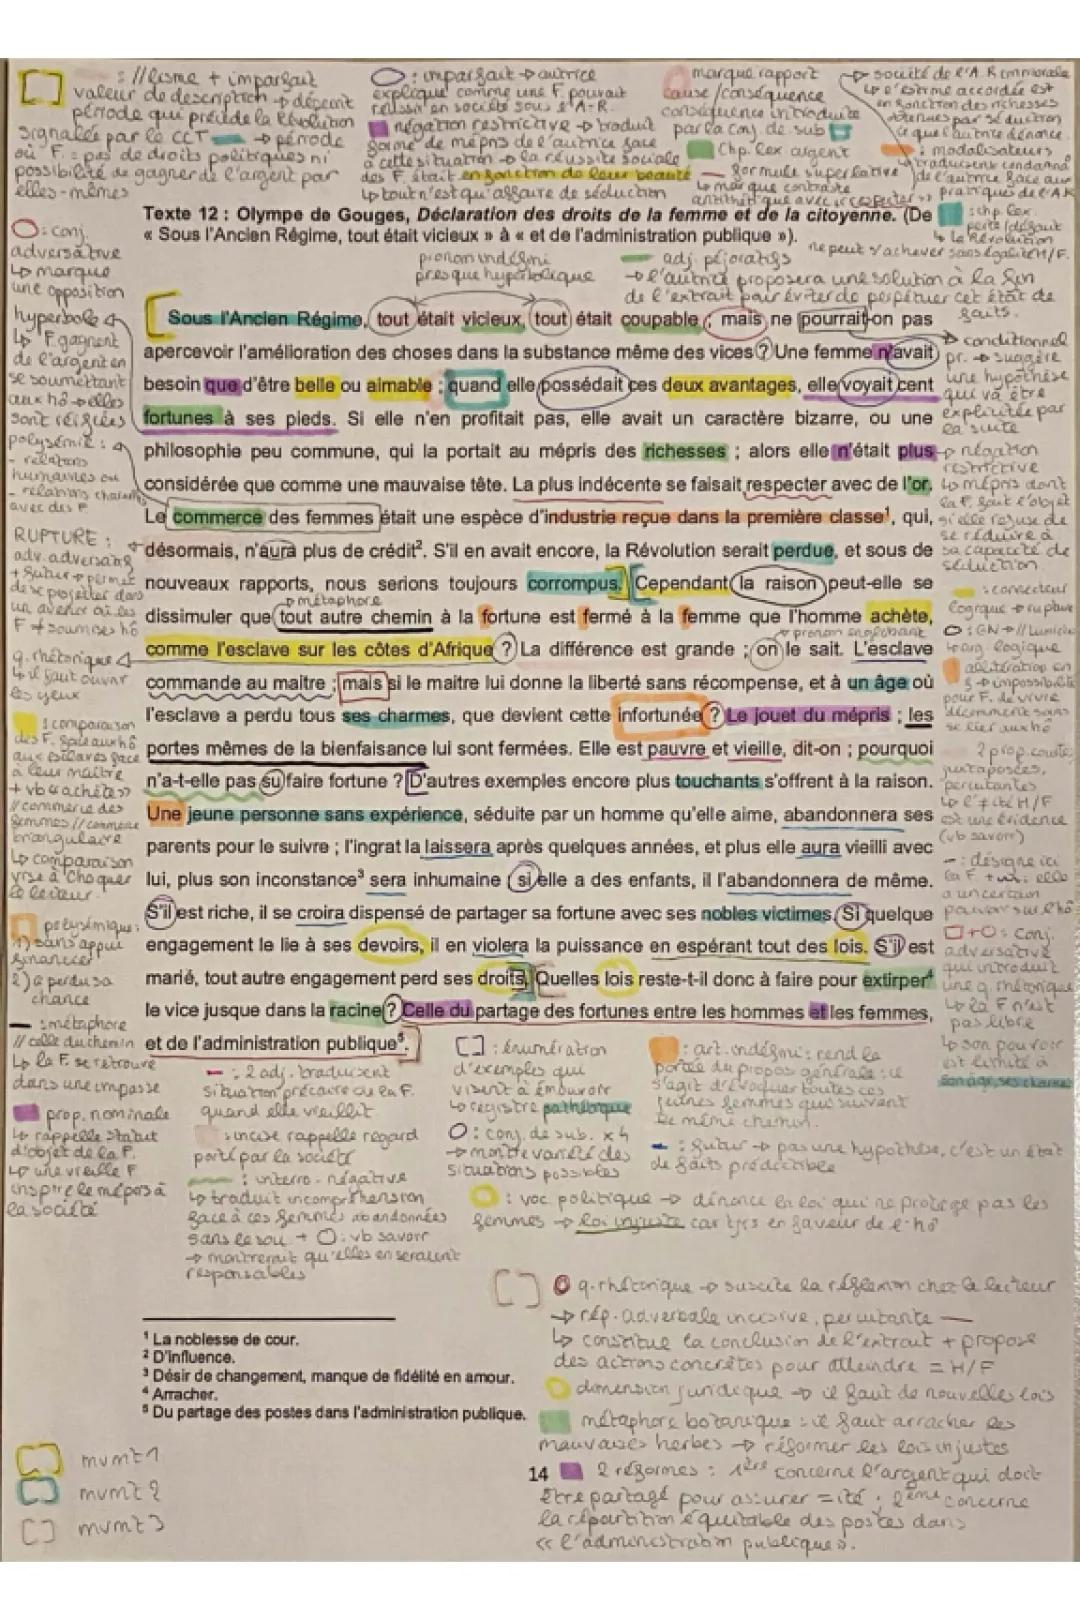 : //lisme + imparfait
valeur de description → décrit
période qui précède la Révolution
signalée par le CCT → période
où F. = pas de droits politiques ni
possibilité de gagner de l'argent par
elles-mêmes
: imparfait → autrice
explique comme une F. pouvait
réussir en société sous l'A-R.
négation restrictive → traduit
forme de mépris de l'autrice face
à cette situation → la réussite sociale
des F. était en fonction de leur beauté
↳ tout n'est qu'affaire de séduction
marque rapport
cause/conséquence
conséquence introduite
par la conj. de sub
Chp. lex argent
— formule superlative
↳ marque contraste
antithétique avec « respecter »
→ société de l'A.R immorale
↳ l'estime accordée est
en fonction des richesses
obtenues par séduction
ce que l'autrice dénonce
: modalisateurs
↳ traduisent condamn°
de l'autrice face aux
pratiques de l'A.R
Texte 12 : Olympe de Gouges, Déclaration des droits de la femme et de la citoyenne. (De
« Sous l'Ancien Régime, tout était vicieux » à « et de l'administration publique »).
: chp lex.
perte/défaut
↳ la Révolution
ne peut s'achever sans égalité H/F.
pronom indéfini
presque hyperbolique
adj. péjoratifs
→ l'autrice proposera une solution à la fin
de l'extrait pour éviter de perpétuer cet état de
faits.
: conj.
adversative
↳ marque
une opposition
hyperbole
↳ F gagnent
de l'argent en
se soumettant
aux hô → elles
sont réifiées
polysémie :
- relations
humaines ou
- relations charnelles
avec des F
RUPTURE :
adv. adversatif
+ futur → permet
de se projeter dans
un avenir où les
F ≠ soumises hô
q. rhétorique
↳ il faut ouvrir
les yeux
: comparaison
des F. face aux hô
aux esclaves face
à leur maître
+ vb « achète »
// commerce des
femmes // commerce
triangulaire
↳ comparaison
vise à choquer
le lecteur
polysémique :
1) sans appui
financier
2) a perdu sa
chance
— : métaphore
// celle du chemin
↳ la F. se retrouve
dans une impasse
prop. nominale
↳ rappelle statut
d'objet de la F.
↳ une vieille F
inspire le mépris à
la société
Sous l'Ancien Régime, tout était vicieux, tout était coupable ; mais ne pourrait-on pas
apercevoir l'amélioration des choses dans la substance même des vices ? Une femme n'avait
besoin que d'être belle ou aimable ; quand elle possédait ces deux avantages, elle voyait cent
fortunes à ses pieds. Si elle n'en profitait pas, elle avait un caractère bizarre, ou une
philosophie peu commune, qui la portait au mépris des richesses ; alors elle n'était plus
considérée que comme une mauvaise tête. La plus indécente se faisait respecter avec de l'or.
Le commerce des femmes était une espèce d'industrie reçue dans la première classe¹, qui,
désormais, n'aura plus de crédit². S'il en avait encore, la Révolution serait perdue, et sous de
nouveaux rapports, nous serions toujours corrompus. Cependant la raison peut-elle se
→ métaphore
dissimuler que tout autre chemin à la fortune est fermé à la femme que l'homme achète,
→ pronom englobant
comme l'esclave sur les côtes d'Afrique ? La différence est grande ; on le sait. L'esclave
commande au maître ; mais si le maître lui donne la liberté sans récompense, et à un âge où
l'esclave a perdu tous ses charmes, que devient cette infortunée ? Le jouet du mépris ; les
portes mêmes de la bienfaisance lui sont fermées. Elle est pauvre et vieille, dit-on ; pourquoi
n'a-t-elle pas su faire fortune ? D'autres exemples encore plus touchants s'offrent à la raison.
Une jeune personne sans expérience, séduite par un homme qu'elle aime, abandonnera ses
parents pour le suivre ; l'ingrat la laissera après quelques années, et plus elle aura vieilli avec
lui, plus son inconstance³ sera inhumaine ; si elle a des enfants, il l'abandonnera de même.
S'il est riche, il se croira dispensé de partager sa fortune avec ses nobles victimes. Si quelque
engagement le lie à ses devoirs, il en violera la puissance en espérant tout des lois. S'il est
marié, tout autre engagement perd ses droits. Quelles lois reste-t-il donc à faire pour extirper⁴
le vice jusque dans la racine ? Celle du partage des fortunes entre les hommes et les femmes,
et de l'administration publique⁵.
→ conditionnel
pr. → suggère
une hypothèse
qui va être
explicitée par
la suite
→ négation
restrictive
↳ mépris dont
la F. fait l'objet
si elle refuse de
se réduire à
sa capacité de
séduction
: connecteur
logique → rupture
: GN → // Lumières
↳ arg. logique
allitération en
f → impossibilité
pour F. de vivre
décemment sans
se lier aux hô
2 prop. courtes,
juxtaposées,
percutantes
↳ l'≠ité H/F
est une évidence
(vb savoir)
— : désigne ici
la F elle
a un certain
pouvoir sur l'hô
+ : Conj.
adversative
qui introduit
une q. rhétorique
↳ la F n'est
pas libre
↳ son pouvoir
est limité à
son âge, ses charmes
— : 2 adj. traduisent
situation précaire où la F.
quand elle vieillit
: incise rappelle regard
porté par la société
: interro-négative
↳ traduit incompréhension
face à ces femmes abandonnées
sans le sou + : vb savoir
→ montrerait qu'elles en seraient
responsables
[ ] : énumération
d'exemples qui
visent à émouvoir
↳ registre pathétique
: conj. de sub. x4
→ montre variété des
situations possibles
: art. indéfini : rend la
portée du propos générale : il
s'agit d'évoquer toutes ces
jeunes femmes qui suivent
le même chemin.
— : futur → pas une hypothèse, c'est un état
de faits prédictible
: voc. politique → dénonce la loi qui ne protège pas les
femmes → loi injuste car tjrs en faveur de l'hô
[ ] q. rhétorique → suscite la réflexion chez le lecteur
→ rép. adverbale incisive, percutante —
↳ constitue la conclusion de l'extrait + propose
des actions concrètes pour atteindre = H/F
dimension juridique → il faut de nouvelles lois
métaphore botanique : il faut arracher les
mauvaises herbes → réformer les lois injustes
2 réformes : 1ère concerne l'argent qui doit
être partagé pour assurer =ité ; 2ème concerne
la répartition équitable des postes dans
« l'administration publique ».
¹ La noblesse de cour.
² D'influence.
³ Désir de changement, manque de fidélité en amour.
⁴ Arracher.
⁵ Du partage des postes dans l'administration publique.
[ ] mvmt 1
[ ] mvmt 2
[ ] mvmt 3
14